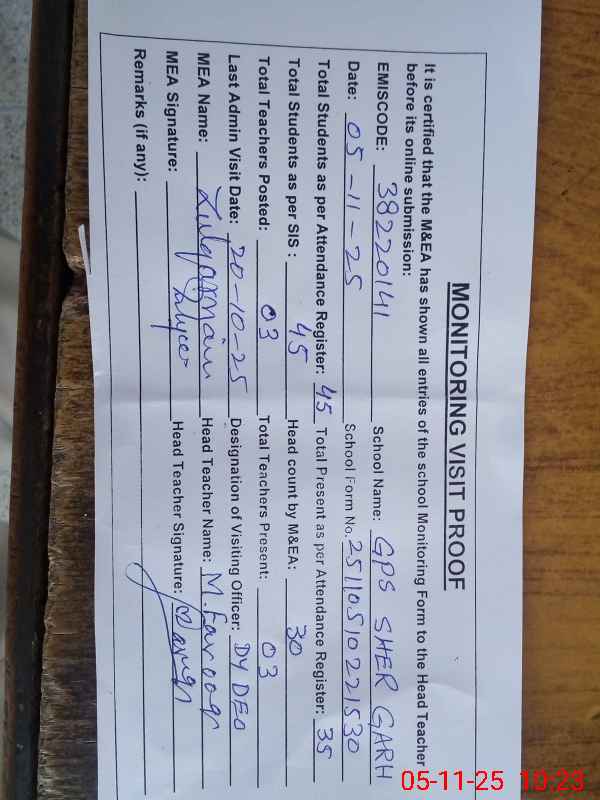 MONITORING VISIT PROOF
It is certified that the M&EA has shown all entries of the school Monitoring Form to the Head Teacher
before its online submission:
EMISCODE: 38220141 School Name: GPS SHER GARH
Date: 05-11-25 School Form No. 25110510221530
Total Students as per Attendance Register: 45 Total Present as per Attendance Register: 35
Total Students as per SIS : 45 Head count by M&EA: 30
Total Teachers Posted: 03 Total Teachers Present: 03
Last Admin Visit Date: 20-10-25 Designation of Visiting Officer: DY DEO
MEA Name: Zulqarnain Head Teacher Name: M. Farooq
MEA Signature: Head Teacher Signature:
Remarks (if any):
05-11-25 10:23